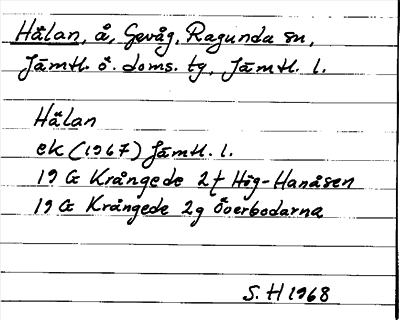 Hålan, å, Gevåg, Ragunda sn,
Jämtl. ö. doms. tg, Jämtl. l.
Hålan
ek (1967) Jämtl. l.
19 G Krångede 2f Hög-Hanåsen
19 G Krångede 2g Överbodarna
S. H 1968